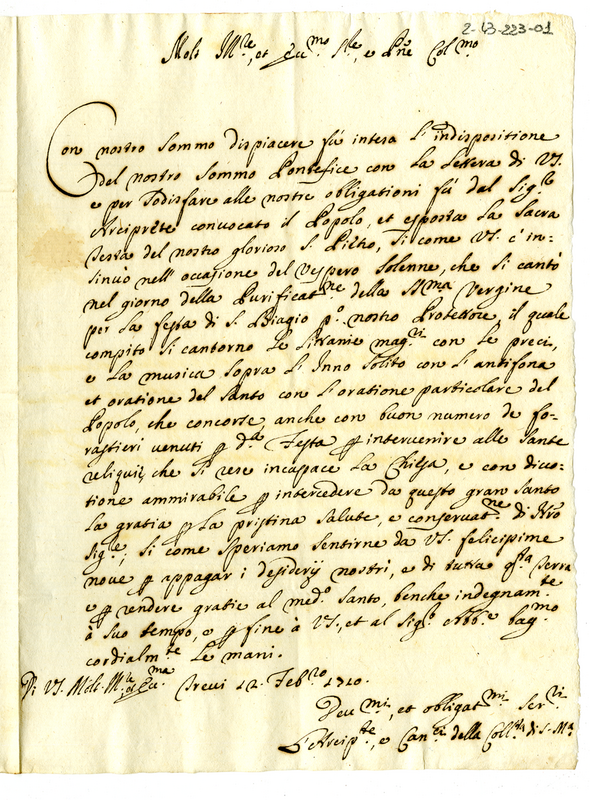 2-13-223-01
Molt Ill.re, et Ecc.mo S.re, e Pne Col.mo
Con nostro sommo dispiacere fù intesa l'indispositione
del nostro sommo Pontefice con la lettera di VS.
e per sodisfare alle nostre obligationi fù dal Sig.re
Arciprète convocato il Popolo, et esposta la Sacra
testa del nostro glorioso S. Pietro, si come VS. c'in=
sinuò nell'occasione del Vespero solenne, che si cantò
nel giorno della Purificat.ne della SS.ma Vergine
per la festa di S. Biagio p.o nostro Protettore, il quale
compito si cantorno le Littanie mag.ri con le preci,
e la musica sopra l'Inno solito con l'antifona
et oratione del Santo con l'oratione particolare del
Popolo, che concorse, anche con buon numero de fo-
rastieri venuti p d.ta Festa p intervenire alle sante
reliquij, che si rese incapace la Chiesa, e con divo=
tione ammirabile p intercedere da questo gran Santo
la gratia p la pristina salute, e conservat.ne di Nro
Sig.re, si come speriamo sentirne da VS. felicissime
nove p appagar i desiderij nostri, e di tutta q.sta Terra
e p rendere gratie al med.o Santo, benche indegnam.te
à suo tempo, e p fine à VS., et al Sig.r Abb.e bag.mo
cordialm.te le mani.
Di VS. Molt. Ill.re et Ecc.ma Trevi 12. Feb.ro 1710.
Dev.mi, et obligat.mi Ser.ri
L'Arcip.te, e Can.ci della Coll.ta di S. M.a